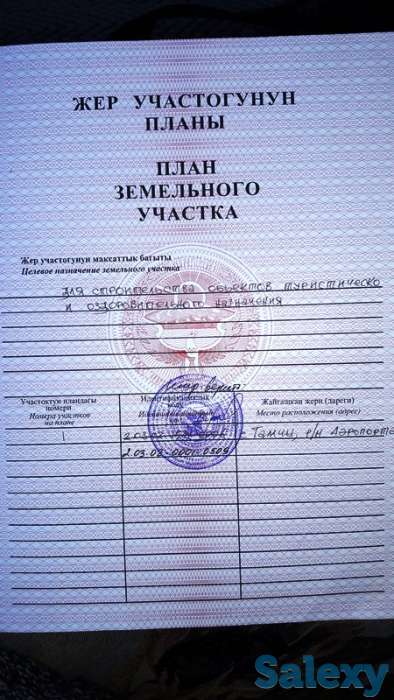 ЖЕР УЧАСТОГУНУН
ПЛАНЫ
ПЛАН
ЗЕМЕЛЬНОГО
УЧАСТКА
Жер участогунун максаттык багыты
Целевое назначение земельного участка
для строительства объектов туристическо
и оздоровительного назначения
Участоктун пландагы
номери
Номера участков
на плане
Идентификациялык
Жайгашкан жери (дареги)
Место расположения (адрес)
1
с. Тамчы, р/н Аэропорта
2.03.03.0001.0509
Salexy